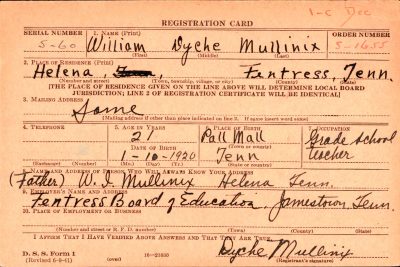 1-C Dec
REGISTRATION CARD
SERIAL NUMBER 1. NAME (Print) ORDER NUMBER
S-60 William Dyche Mullinix S-1655
(First) (Middle) (Last)
2. PLACE OF RESIDENCE (Print)
Helena, Fentress, Tenn.
(Number and street) (Town, township, village, or city) (County) (State)
[THE PLACE OF RESIDENCE GIVEN ON THE LINE ABOVE WILL DETERMINE LOCAL BOARD
JURISDICTION; LINE 2 OF REGISTRATION CERTIFICATE WILL BE IDENTICAL]
3. MAILING ADDRESS
Same
[Mailing address if other than place indicated on line 2. If same insert word same]
4. TELEPHONE 5. AGE IN YEARS 6. PLACE OF BIRTH 7. OCCUPATION
21 Pall Mall Grade School
DATE OF BIRTH (Town or county) Teacher
1-10-1920 Tenn
(Exchange) (Number) (Mo.) (Day) (Yr.) (State or country)
8. NAME AND ADDRESS OF PERSON WHO WILL ALWAYS KNOW YOUR ADDRESS
(Father) Mullinix Helena Tenn.
9. EMPLOYER'S NAME AND ADDRESS
Fentress Board of Education, Jamestown, Tenn.
10. PLACE OF EMPLOYMENT OR BUSINESS
(Number and street or R. F. D. number) (Town) (County) (State)
I AFFIRM THAT I HAVE VERIFIED ABOVE ANSWERS AND THAT THEY ARE TRUE.
D. S. S. Form 1 Dyche Mullinix
(Revised 6-9-41) 16-21635 (Registrant's signature)